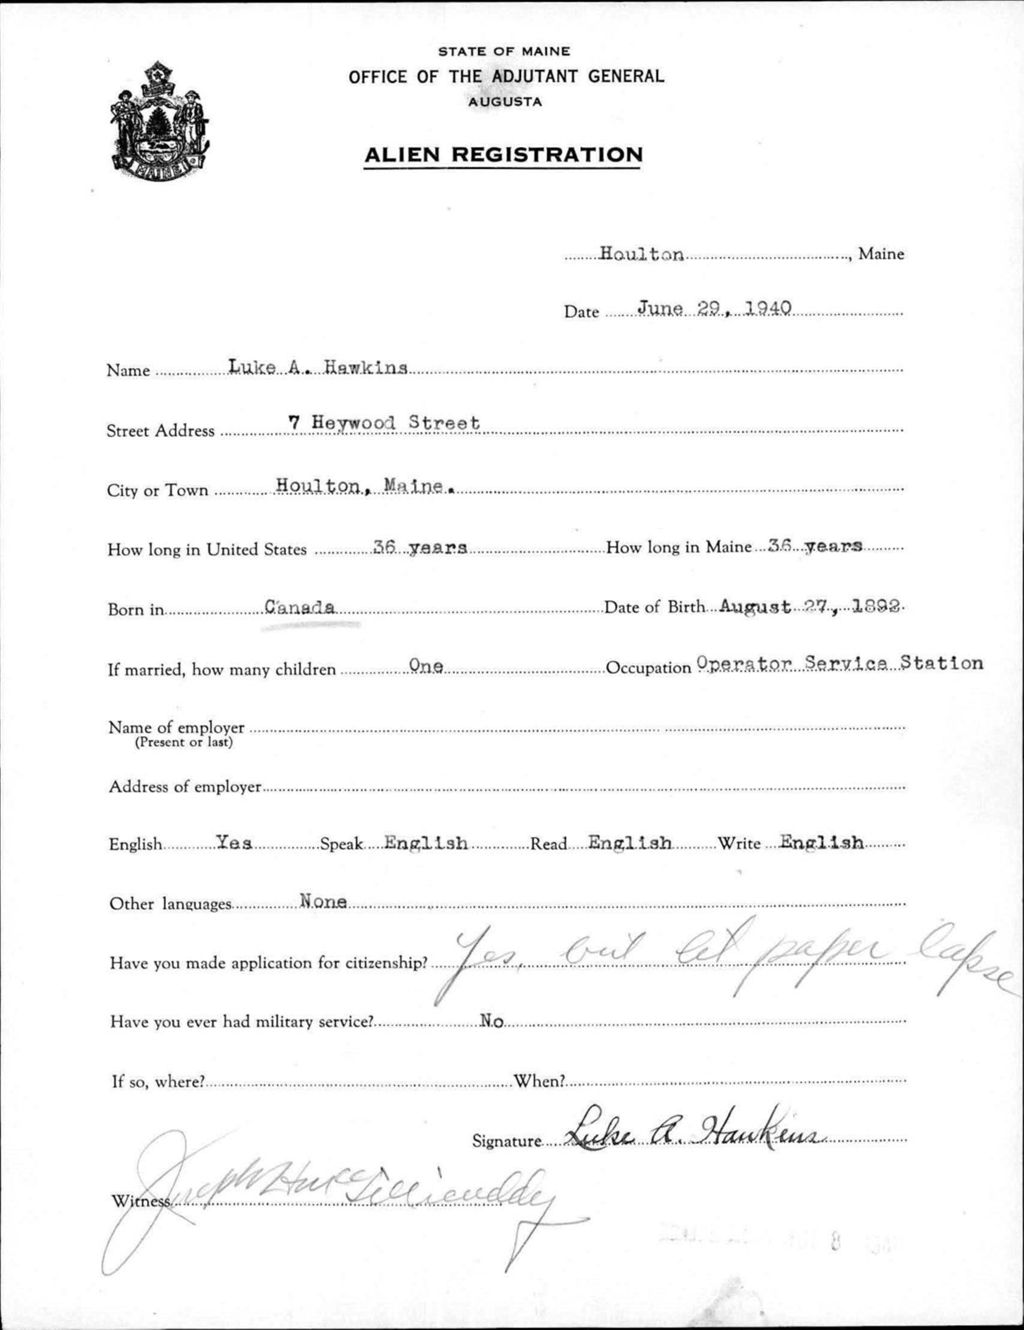 STATE OF MAINE
OFFICE OF THE ADJUTANT GENERAL
AUGUSTA
ALIEN REGISTRATION
MAINE
Houlton, Maine
Date June 29, 1940
Name Luke A. Hawkins
Street Address 7 Heywood Street
City or Town Houlton, Maine.
How long in United States 36 years How long in Maine 36 years
Born in Canada Date of Birth August 27, 1892
If married, how many children One Occupation Operator Service Station
Name of employer
(Present or last)
Address of employer
English Yes Speak English Read English Write English
Other languages None
Have you made application for citizenship? Yes, but let paper lapse
Have you ever had military service? No
If so, where? When?
Signature Luke A. Hawkins
Witness